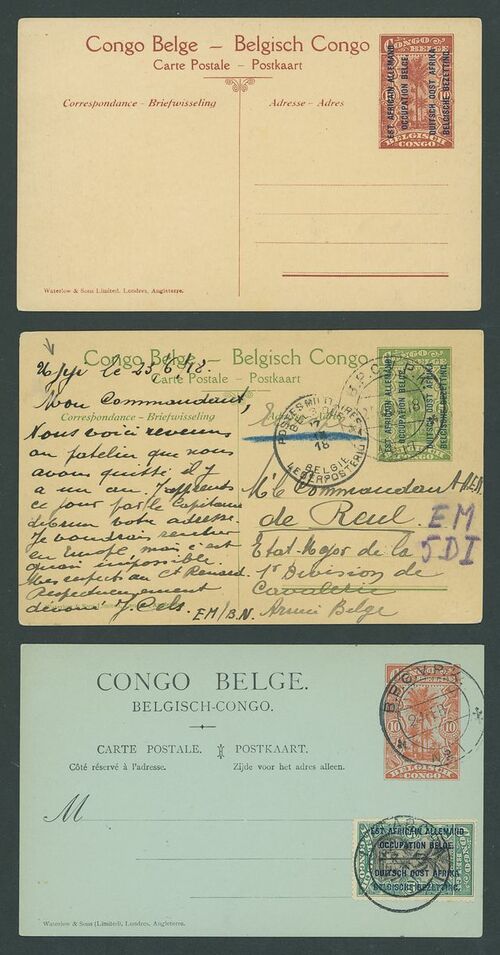 Congo Belge – Belgisch Congo
Carte Postale – Postkaart
Correspondance - Briefwisseling
Adresse - Adres
CONGO BELGE
EST AFRICAIN ALLEMAND
OCCUPATION BELGE.
DUITSCH OOST AFRIKA
BELGISCHE BEZETTING.
BELGISCH CONGO
Waterlow & Sons Limited, Londres, Angleterre.
le 25/6/18.
Congo Belge – Belgisch Congo
Carte Postale – Postkaart
Mon Commandant,
EST AFRICAIN ALLEMAND
OCCUPATION BELGE.
DUITSCH OOST AFRIKA
BELGISCHE BEZETTING.
POSTES MILITAIRES
BELGIE
LEGERPOSTERIJ
18
Nous voici revenus
au patelin que nous
avons quitté il y
a un an. J'apprends
ce jour par le Capitaine
votre adresse.
Je voudrais rentrer
en Europe mais c'est
quasi impossible.
Mes respects au Ct Renard
Respectueusement
dévoué J. Cels.
EM/B.N.
Mr le Commandant A.E.M.
de Reul
Etat-Major de la
1e Division de
Cavalerie
Armée Belge
EM
5DI
CONGO BELGE.
BELGISCH-CONGO.
CARTE POSTALE. POSTKAART.
Côté réservé à l'adresse. Zijde voor het adres alleen.
10 10
BELGISCH
CONGO
M
EST AFRICAIN ALLEMAND
OCCUPATION BELGE.
DUITSCH OOST AFRIKA
BELGISCHE BEZETTING.
Waterlow & Sons (Limited), Londres, Angleterre.